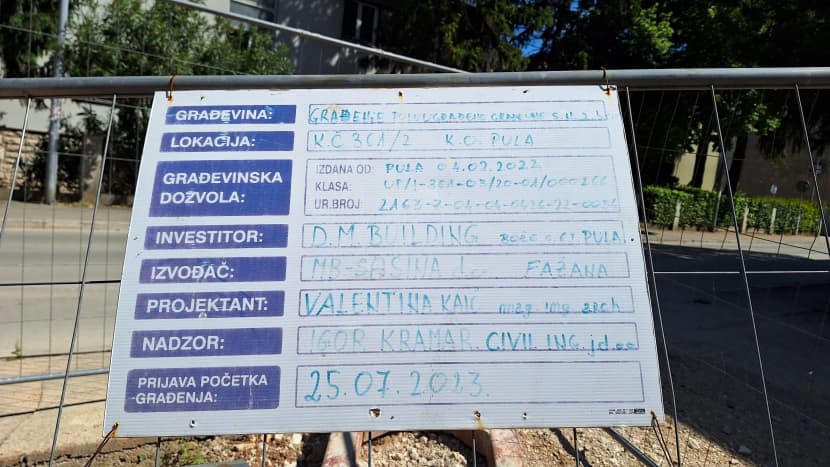 GRAĐEVINA: GRAĐENJE
LOKACIJA: K.Č 361/2 K.O. PULA
GRAĐEVINSKA DOZVOLA:
IZDANA OD: PULA 04.02.2022
KLASA: UP/I-361-03/20-01/000266
UR.BROJ:
INVESTITOR: D.M. BUILDING PULA
IZVOĐAČ: MB-SASINA d. FAŽANA
PROJEKTANT: VALENTINA KAIĆ mag ing arch
NADZOR: IGOR KRAMAR CIVIL ING. j.d.o.o
PRIJAVA POČETKA
GRAĐENJA: 25.07.2023.